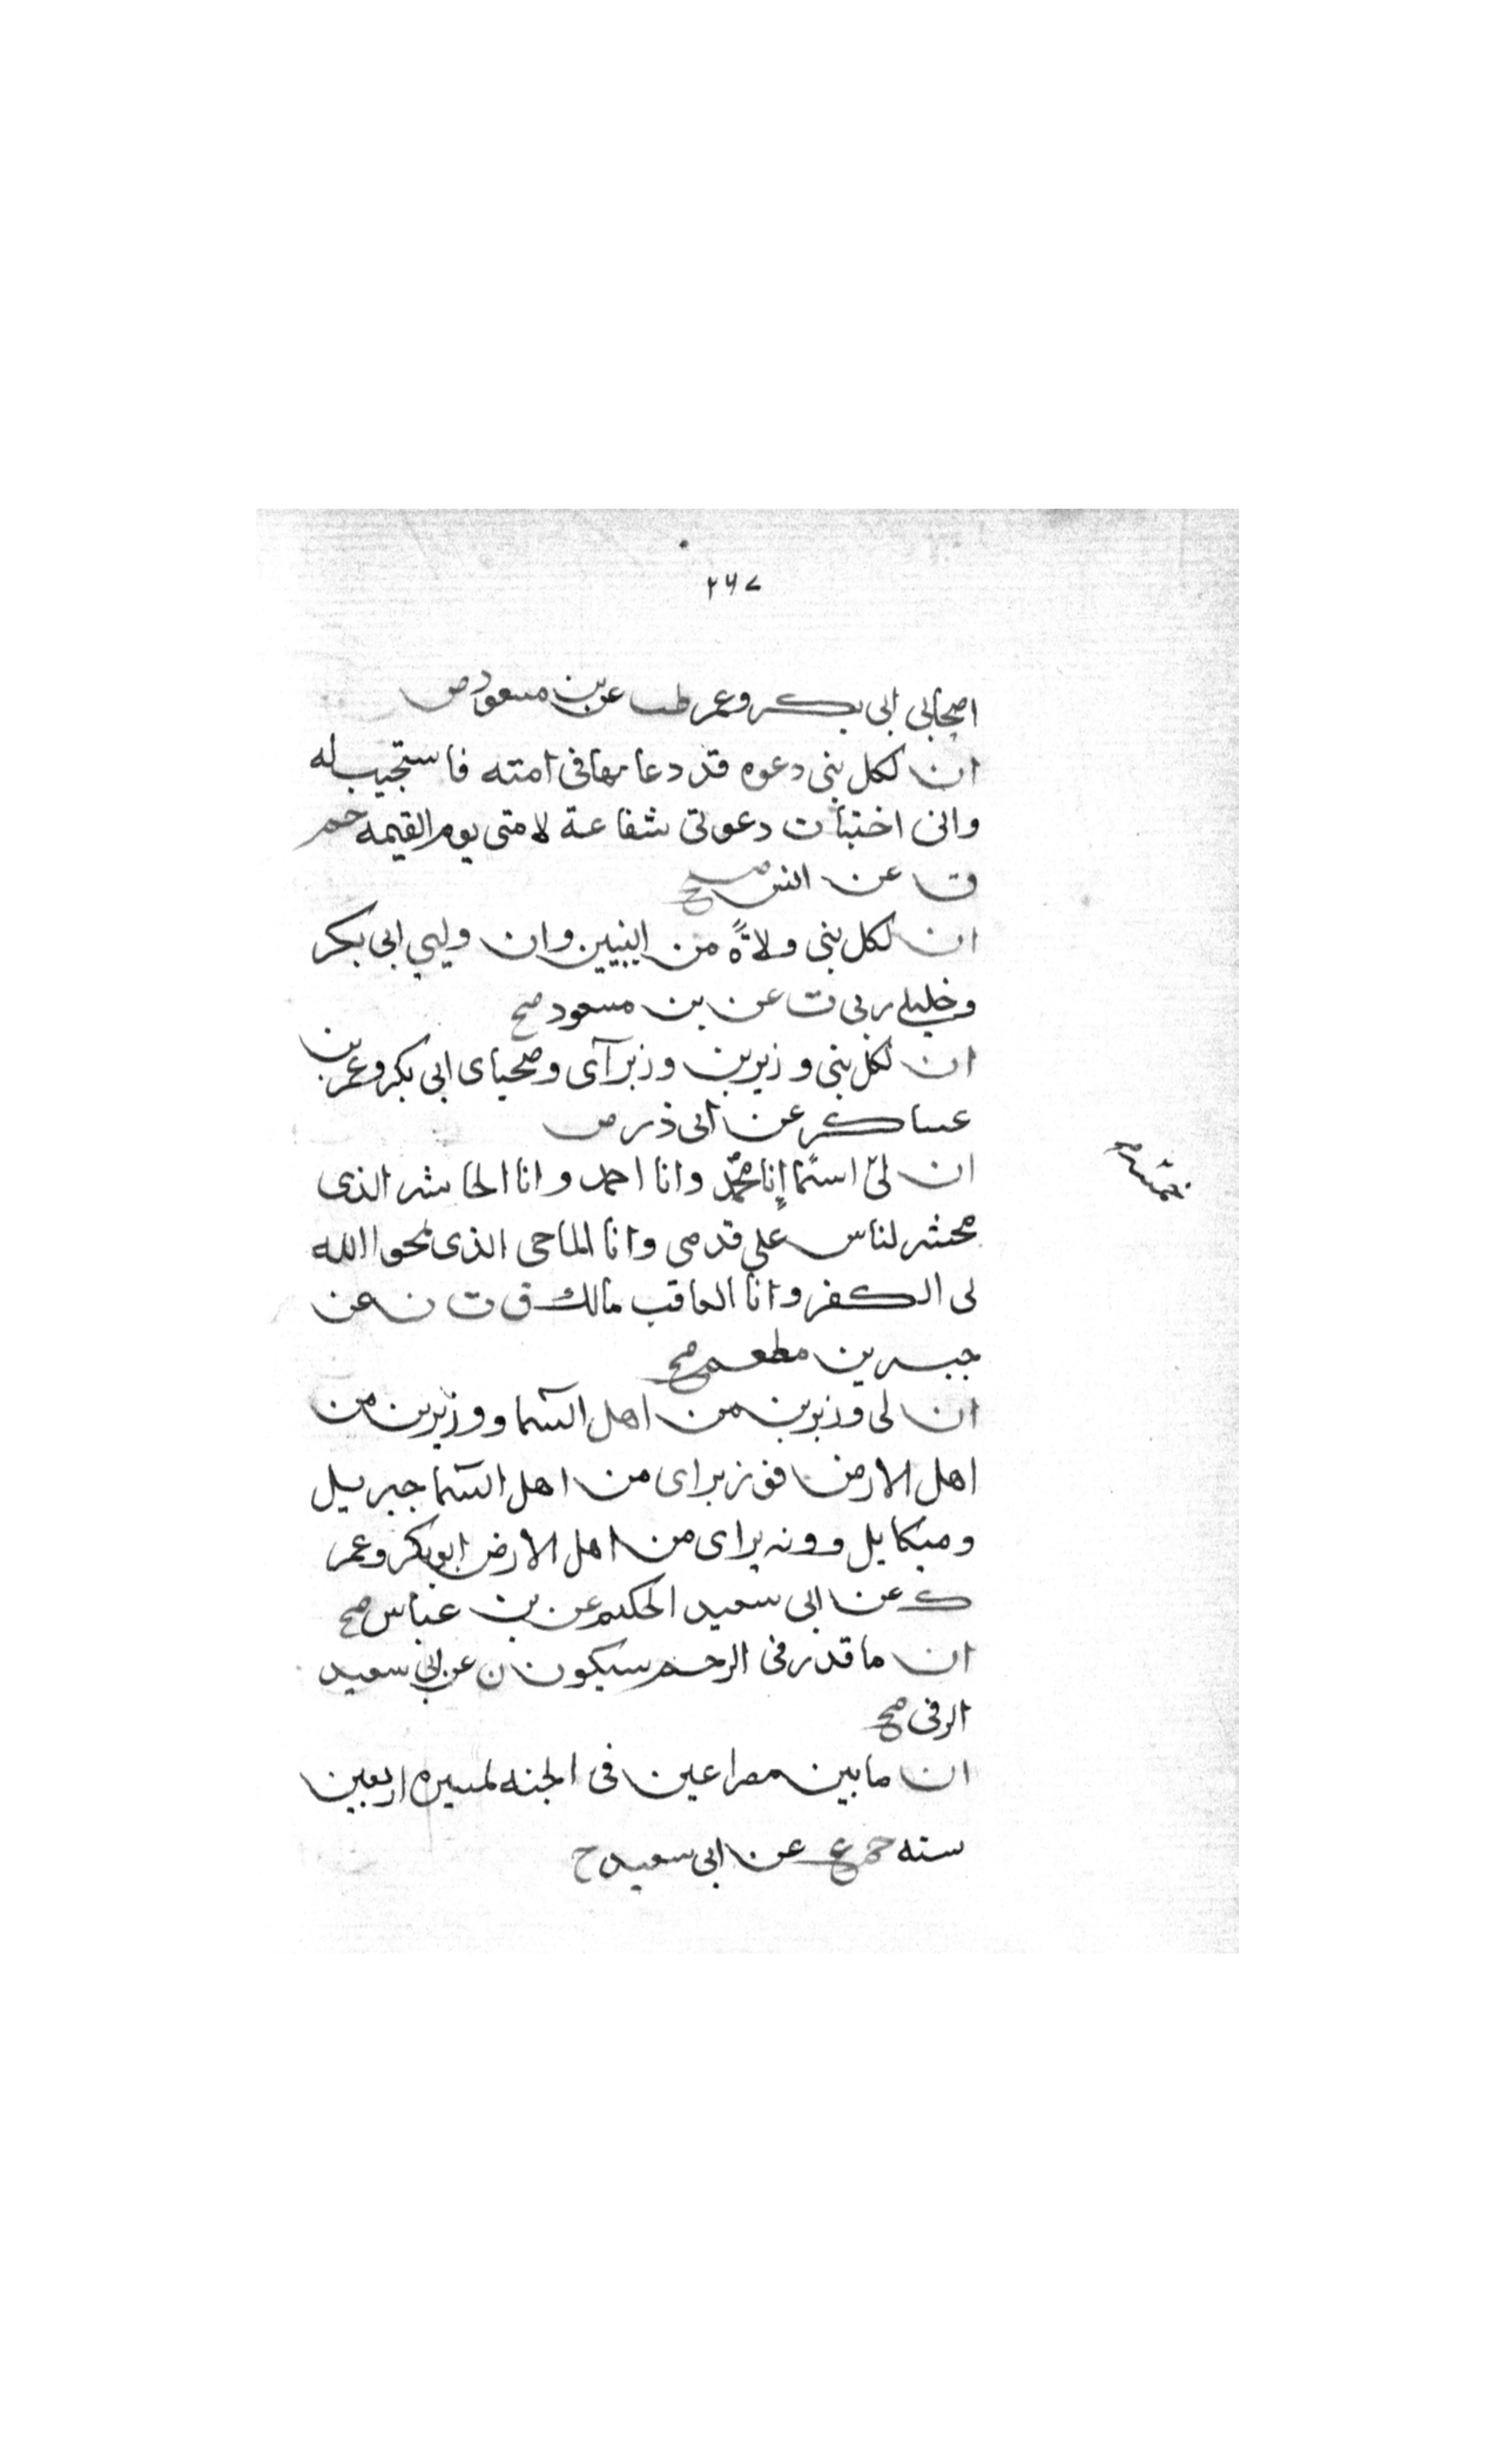 ٢٦٧
اصحابى ابى بكر وعمر طب عن بن مسعود ض
ان لكل بنى دعوه قد دعا بها فى امته فاستجيب له
وانى اختبات دعوتى شفاعة لامتى يوم القيمه حم
ق عن انس صح
ان لكل بنى ولاةً من النبيين وان وليى ابى بكر
وخليلى ربى ت عن بن مسعود صح
ان لكل بنى وزيرين وزيرآى وصحباى ابى بكر وعمر بن
عساكر عن ابى ذر ض
ان لىّ اسمًا انا محمّد وانا احمد وانا الحاشر الذى
محشر لناس على قدمى وانا الماحى الذى يمحوا الله
لى الكفر وانا العاقب مالك ق ت ن عن
جبير بن مطعم صح
خمسة
ان لى وزيرين من اهل السّما ووزيرين من
اهل الارض فوزيراى من اهل السّما جبريل
وميكايل ووزيراى من اهل الارض ابو بكر وعمر
ك عن ابى سعيد الحكيم عن بن عباس صح
ان ما قدر فى الرحم سيكون ن عن ابى سعيد
الرقى صح
ان ما بين مصراعين فى الجنه لمسيره اربعين
سنه حم ع عن ابى سعيد ح